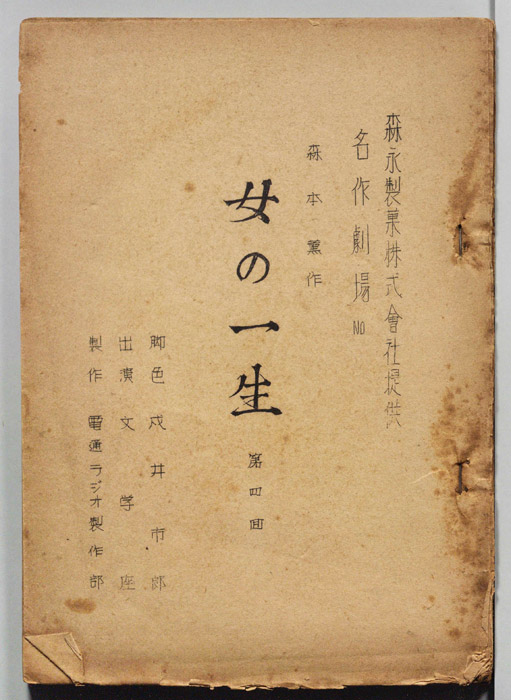 森永製菓株式會社提供
名作劇場 NO
森本薫作
女の一生
第四回
脚色 戌井市郎
出演 文学座
製作 電通ラジオ製作部